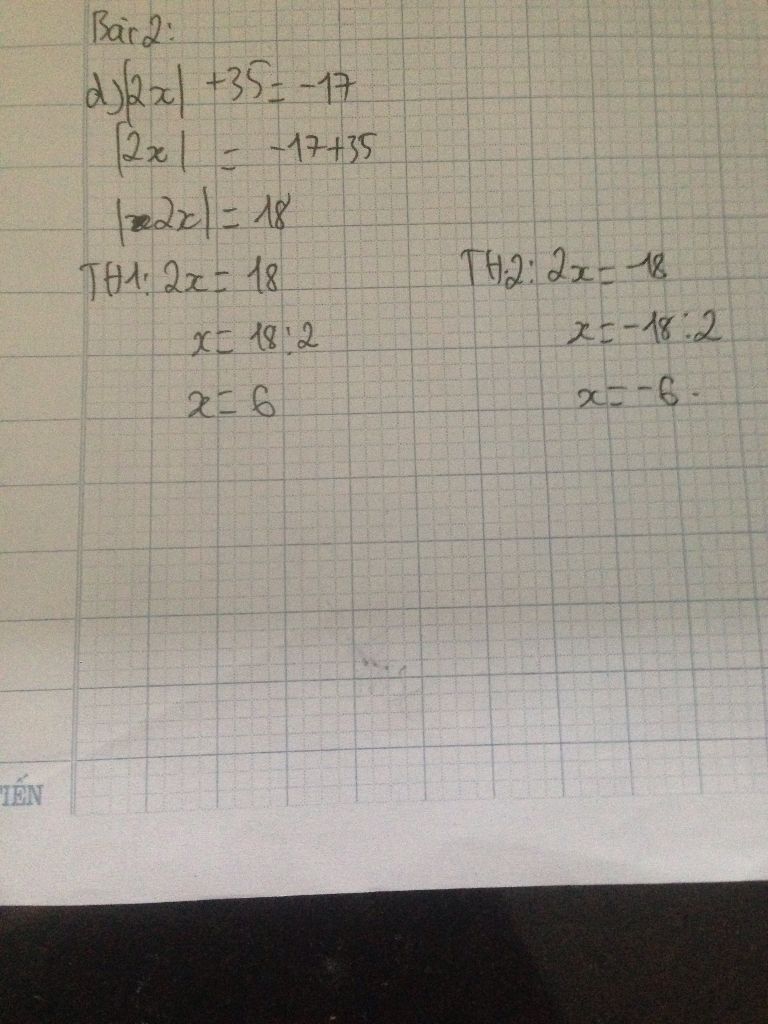 Bài 2:
d) |2x| + 35 = -17
|2x| = -17+35
|2x| = 18
TH1: 2x = 18
x = 18:2
x = 6
TH2: 2x = -18
x = -18:2
x = -6.
TIẾN